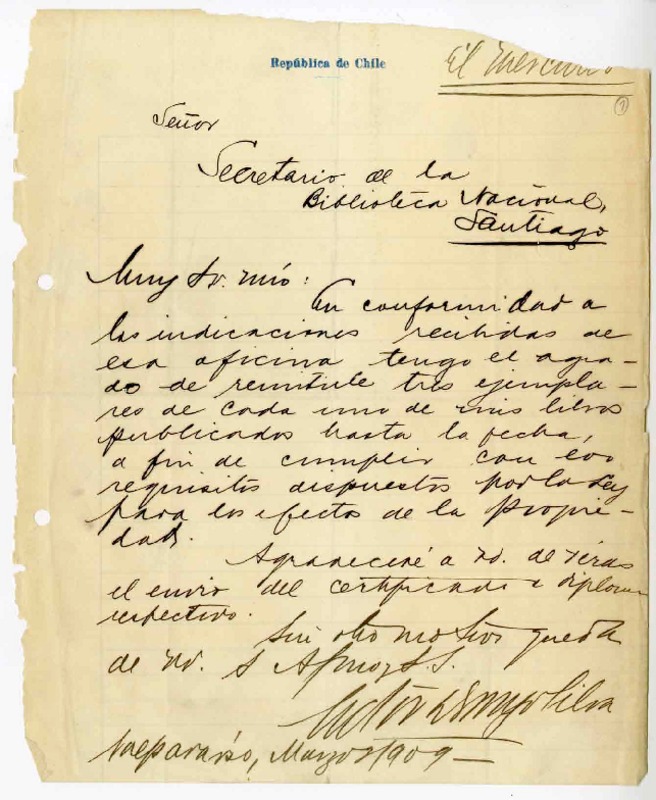 República de Chile
El Mercurio
1
Señor
Secretario de la
Biblioteca Nacional,
Santiago
Muy Sr. mío:
En conformidad a
las indicaciones recibidas de
esa oficina tengo el agra-
do de remitirle tres ejempla-
res de cada uno de mis libros
publicados hasta la fecha,
a fin de cumplir con los
requisitos dispuestos por la Ley
para los efectos de la propie-
dad.
Agradeceré a Ud. de veras
el envío del certificado o diploma
respectivo.
Sin otro motivo queda
de Ud. S. Afmo. y S.S.
Víctor Domingo Silva
Valparaíso, Marzo 1909—